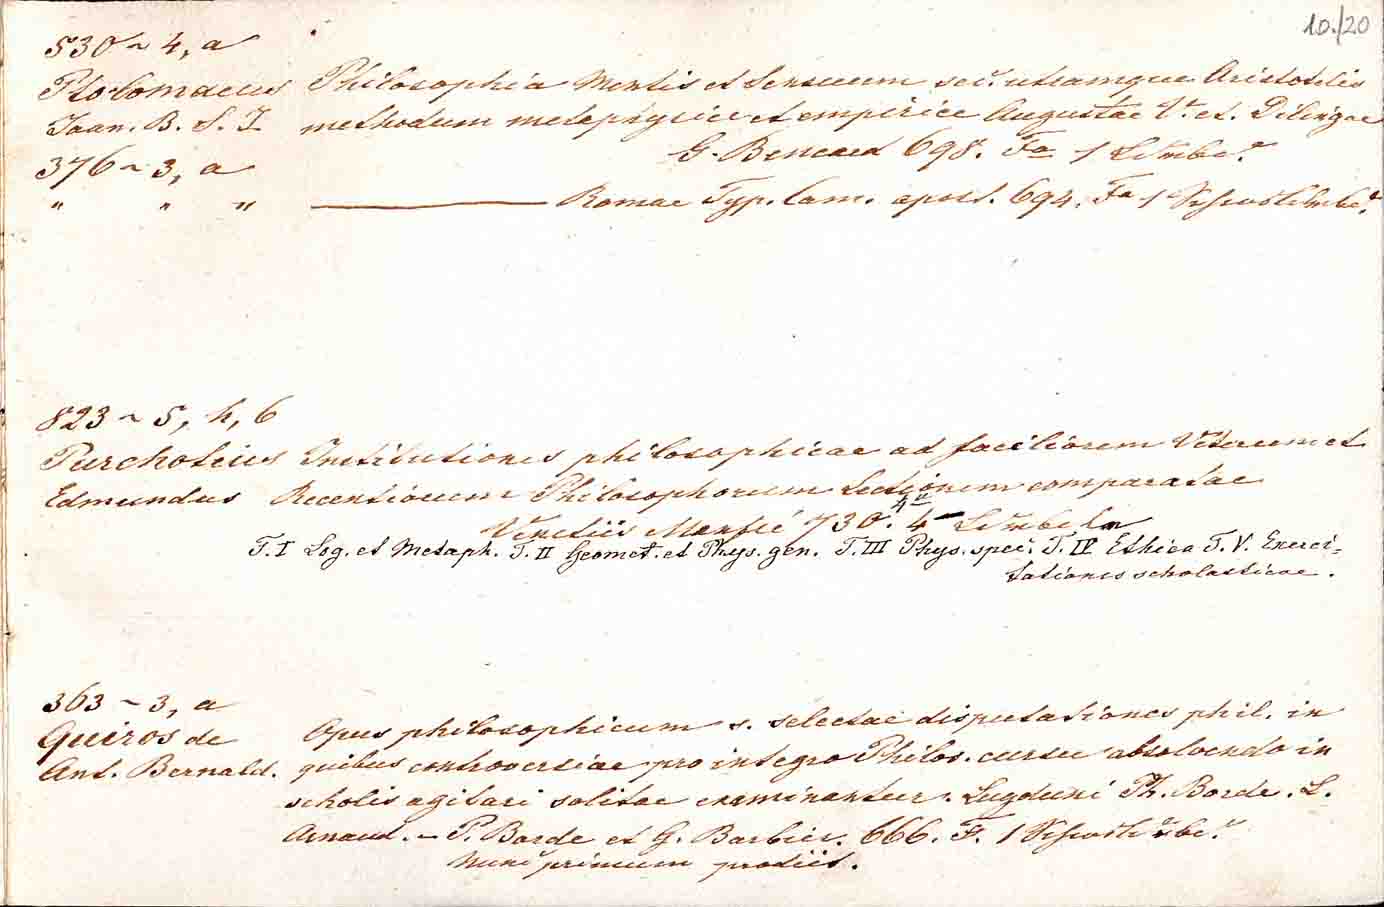 10./20
530 ~ 4, a
Ptolomaeus Philosophia Mentis et Sensuum sec. utramque Aristotelis
Joan. B. S. J. methodum metaphysice et empirice Augustae V. et. Dilingae
G. Bencard 698. Fa 1
376 ~ 3, a
" " " ——— Romae Typ. Cam. apost. 694. Fa 1
823 ~ 5, h, 6
Purchotius Institutiones philosophicae ad faciliorem Veterum et
Edmundus Recentiorum Philosophorum Lectionem comparatae
Venetiis Manfré 730. 4
T. I Log. et Metaph. T. II Geomet. et Phys. gen. T. III Phys. spec. T. IV Ethica T. V. Exerci=
tationes scholasticae.
363 ~ 3, a
Quiros de Opus philosophicum s. selectae disputationes phil. in
Ant. Bernald. quibus controversiae pro integro Philos. cursu absolvendo in
scholis agitari solitae examinantur. Lugduni Ph. Borde. L.
Arnaud. – P. Borde et G. Barbier. 666. F. 1
Nunc primum prodiit.